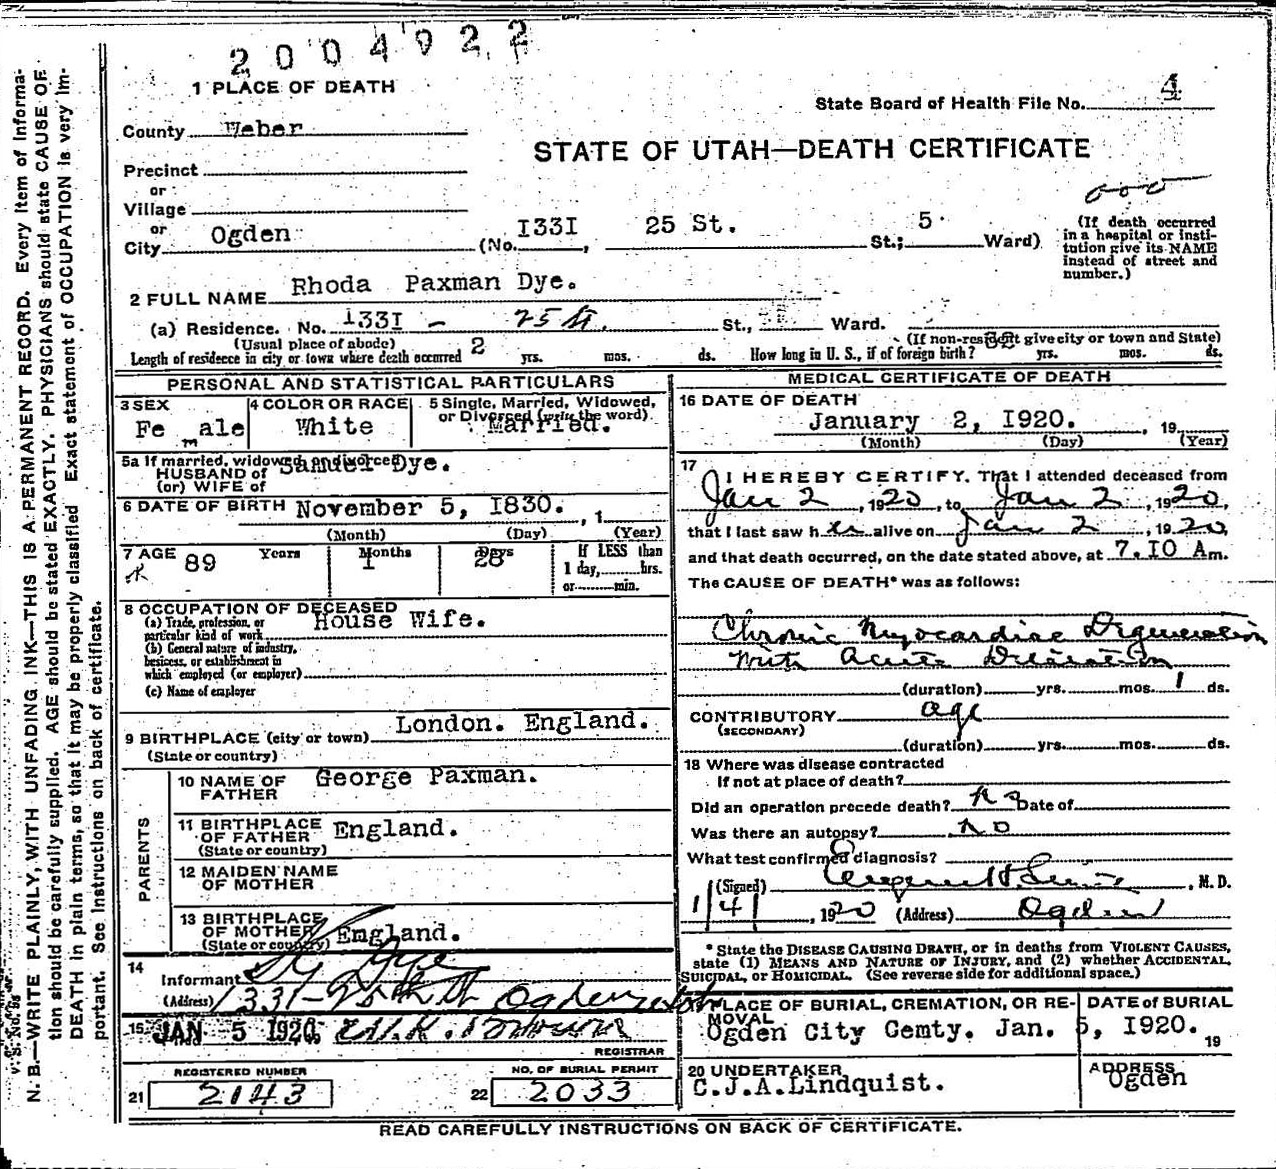 2004022
1 PLACE OF DEATH
State Board of Health File No. 4
County Weber
STATE OF UTAH—DEATH CERTIFICATE
Precinct
or
Village
or
City Ogden (No. I33I, 25 St. St.; 5 Ward)
(If death occurred in a hospital or insti-
tution give its NAME
instead of street and
number.)
2 FULL NAME Rhoda Paxman Dye.
(a) Residence. No. 133I - 25 St. St., Ward.
(Usual place of abode) (If non-resident give city or town and State)
Length of residece in city or town where death occurred 2 yrs. mos. ds. How long in U. S., if of foreign birth? yrs. mos. ds.
PERSONAL AND STATISTICAL PARTICULARS
3 SEX
Female
4 COLOR OR RACE
White
5 Single, Married, Widowed,
or Divorced (write the word).
Married.
5a If married, widowed or divorced
HUSBAND of Samuel Dye.
(or) WIFE of
6 DATE OF BIRTH November 5, I830. , 1
(Month) (Day) (Year)
7 AGE 89 Years I Months 28 Days
If LESS than
1 day, hrs.
or min.
8 OCCUPATION OF DECEASED
(a) Trade, profession, or House Wife.
particular kind of work
(b) General nature of industry,
business, or establishment in
which employed (or employer)
(c) Name of employer
9 BIRTHPLACE (city or town) London. England.
(State or country)
PARENTS
10 NAME OF
FATHER George Paxman.
11 BIRTHPLACE
OF FATHER England.
(State or country)
12 MAIDEN NAME
OF MOTHER
13 BIRTHPLACE
OF MOTHER England.
(State or country)
14
Informant Dye
(Address) 1331-25th St Ogden Utah
15 JAN 5 1920
REGISTRAR
REGISTERED NUMBER
21 2143
NO. OF BURIAL PERMIT
22 2033
MEDICAL CERTIFICATE OF DEATH
16 DATE OF DEATH
January 2, I920. , 19
(Month) (Day) (Year)
17
I HEREBY CERTIFY, That I attended deceased from
Jan 2, 1920, to Jan 2, 1920,
that I last saw her alive on Jan 2, 1920,
and that death occurred, on the date stated above, at 7.I0 Am.
The CAUSE OF DEATH* was as follows:
Chronic Myocardiac Degeneration
with Acute Dilatation
(duration) yrs. mos. 1 ds.
CONTRIBUTORY age
(SECONDARY)
(duration) yrs. mos. ds.
18 Where was disease contracted
If not at place of death?
Did an operation precede death? No Date of
Was there an autopsy? No
What test confirmed diagnosis?
(Signed) , M. D.
1/4/, 1920 (Address) Ogden
* State the DISEASE CAUSING DEATH, or in deaths from VIOLENT CAUSES,
state (1) MEANS AND NATURE OF INJURY, and (2) whether ACCIDENTAL,
SUICIDAL, or HOMICIDAL. (See reverse side for additional space.)
19 PLACE OF BURIAL, CREMATION, OR RE-
MOVAL
Ogden City Cemty.
DATE of BURIAL
Jan. 5, I920. 19
20 UNDERTAKER
C.J.A.Lindquist.
ADDRESS
Ogden
READ CAREFULLY INSTRUCTIONS ON BACK OF CERTIFICATE.
N. B.—WRITE PLAINLY, WITH UNFADING INK—THIS IS A PERMANENT RECORD. Every item of informa-
tion should be carefully supplied. AGE should be stated EXACTLY. PHYSICIANS should state CAUSE OF
DEATH in plain terms, so that it may be properly classified. Exact statement of OCCUPATION is very im-
portant. See Instructions on back of certificate.